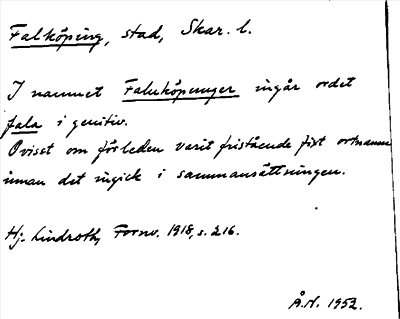 Falköping, stad, Skar. l.
I namnet Faluköpunger ingår ordet
fala i genitiv.
Ovisst om förleden varit fristående fixt ortnamn
innan det ingick i sammansättningen.
Hj. Lindroth, Fornv. 1918, s. 216.
Å.N. 1952.